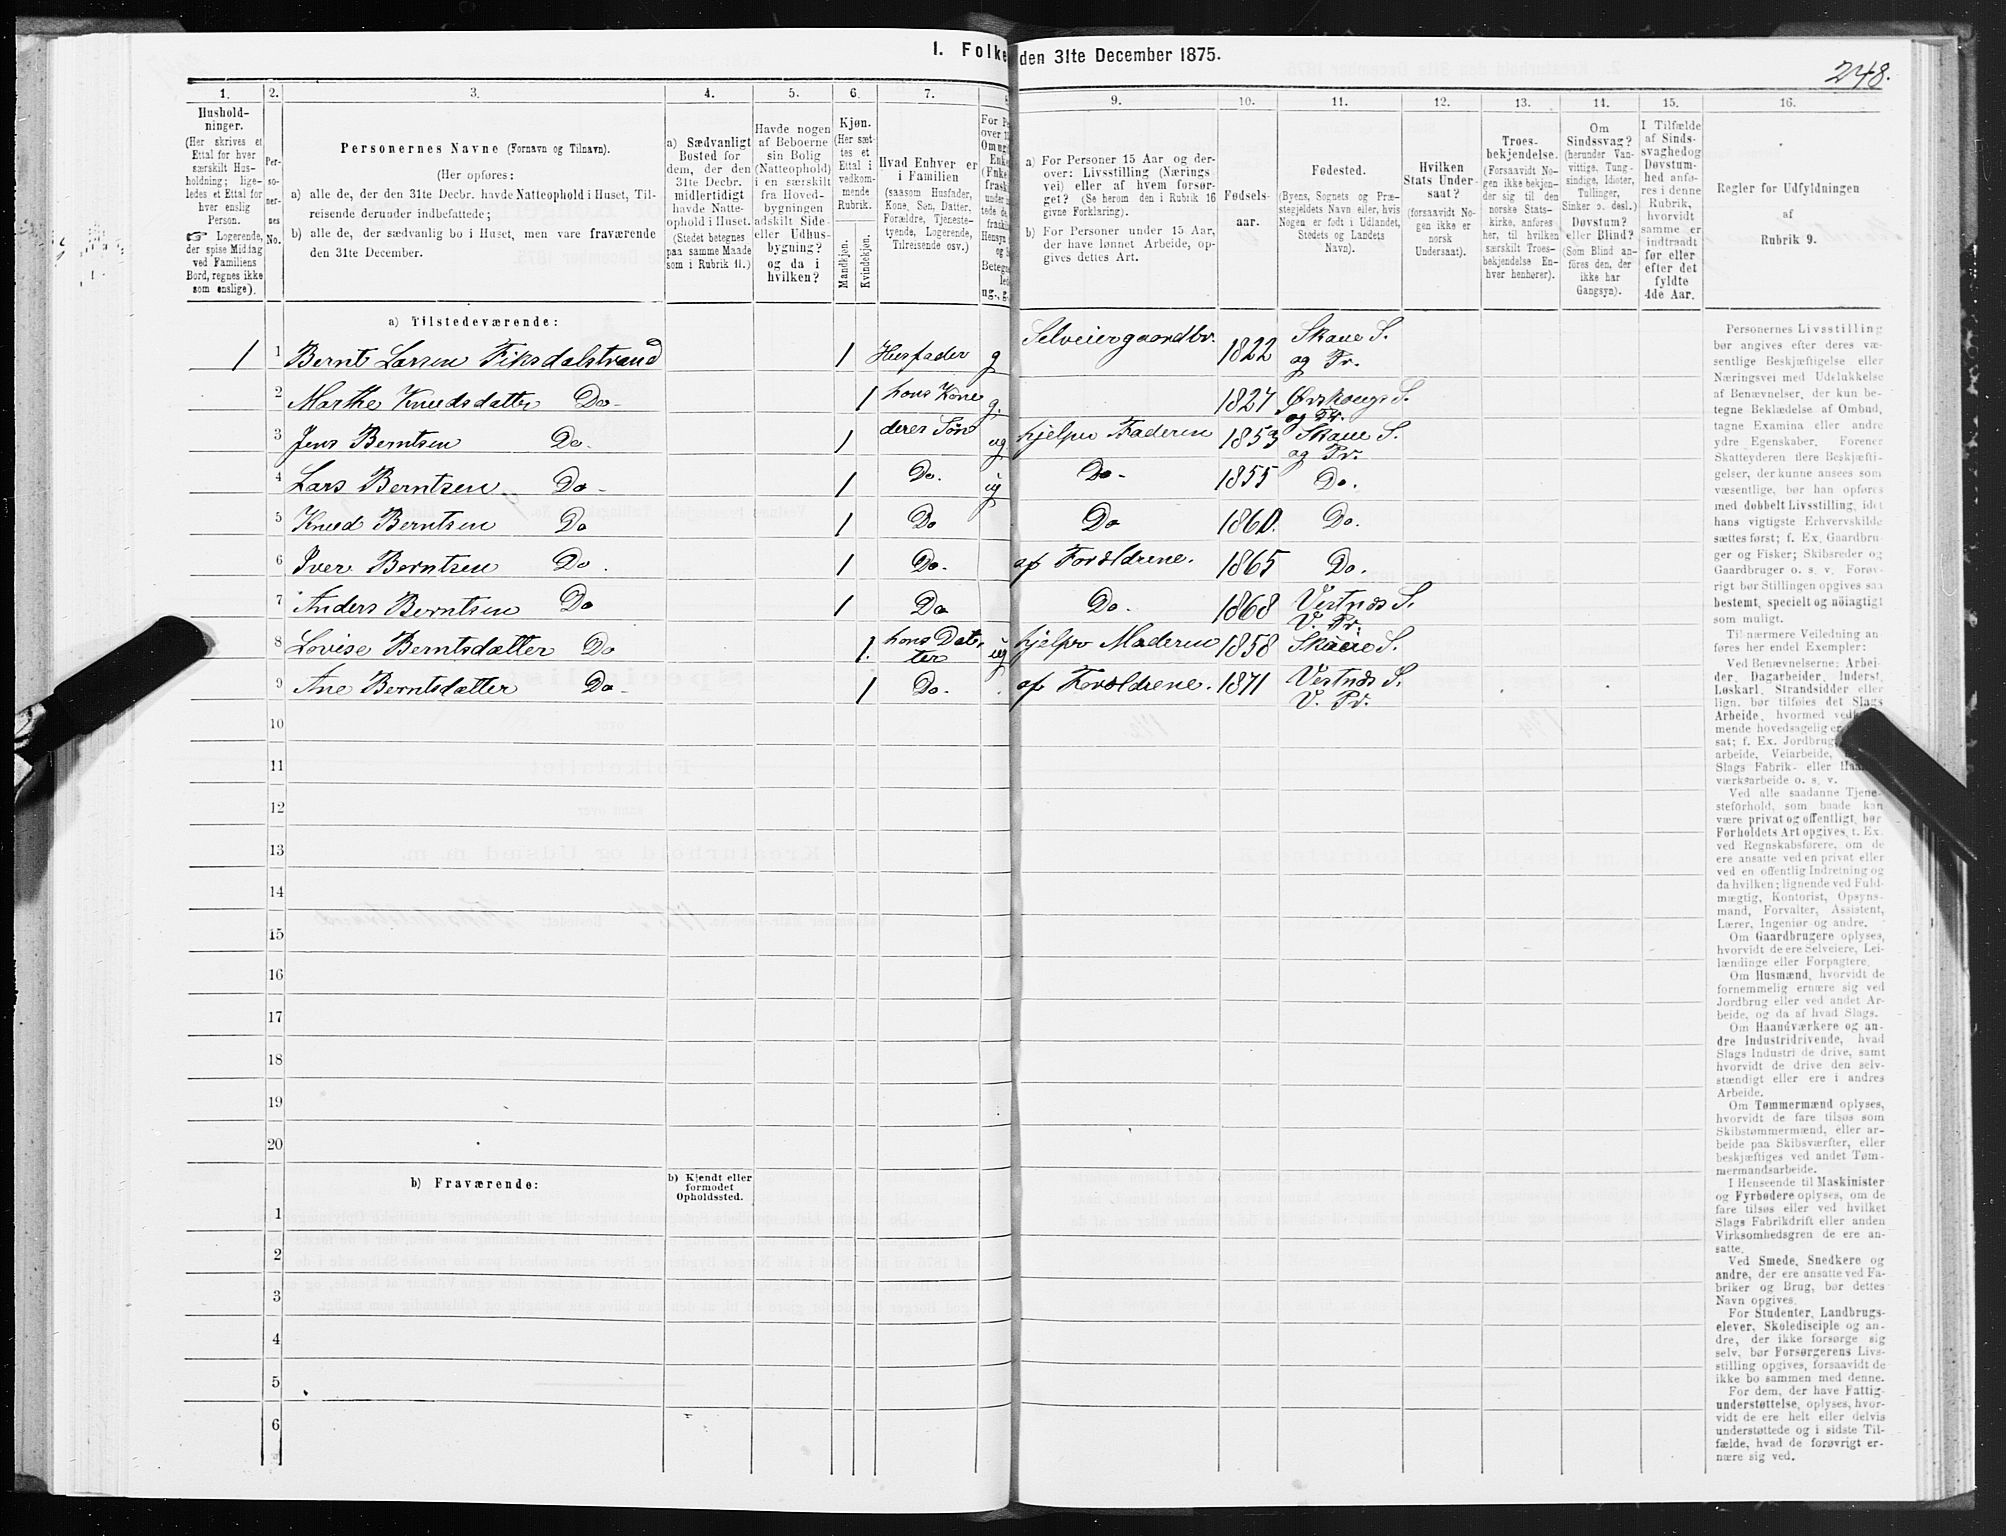 1. Folke
den 31te December 1875.
248.
1.
2.
3.
4.
5.
6.
7.
9.
10.
11.
12.
13.
14.
15.
16.
Hushold-
ninger.
(Her skrives et
Ettal for hver
særskilt Hus-
holdning; lige-
ledes et Ettal for
hver enslig
Person.
☞ Logerende,
der spise Middag
ved Familiens
Bord, regnes ikke
som enslige).
Per-
so-
ner-
nes
No.
Personernes Navne (Fornavn og Tilnavn).
(Her opføres:
a) alle de, der den 31te Decbr. havde Natteophold i Huset, Til-
reisende derunder indbefattede;
b) alle de, der sædvanlig bo i Huset, men vare fraværende
den 31te December.
a) Sædvanligt
Bosted for
dem, der den
31te Decbr.
midlertidigt
havde Natte-
ophold i Huset.
(Stedet betegnes
paa samme Maade
som i Rubrik 11.)
Havde nogen
af Beboerne
sin Bolig
(Natteophold)
i en særskilt
fra Hoved-
bygningen
adskilt Side-
eller Udhus-
bygning?
og da i
hvilken?
Kjøn.
(Her sæt-
tes et
Ettal i
vedkom-
mende
Rubrik.
Mandkjøn.
Kvindekjøn.
Hvad Enhver er
i Familien
(saasom Husfader,
Kone, Søn, Datter,
Forældre, Tjeneste-
tyende, Logerende,
Tilreisende osv.)
a) For Personer 15 Aar og der-
over: Livsstilling (Nærings-
vei) eller af hvem forsør-
get? (Se herom den i Rubrik 16
givne Forklaring).
b) For Personer under 15 Aar,
der have lønnet Arbeide, op-
gives dettes Art.
Fødsels-
aar.
Fødested.
(Byens, Sognets og Præ-
stegjeldets Navn eller, hvis
Nogen er født i Udlandet,
Stedets og Landets
Navn).
Hvilken
Stats Under-
saat?
(forsaavidt No-
gen ikke er
norsk
Undersaat).
Troes-
bekjendelse.
(Forsaavidt No-
gen ikke bekjen-
der sig til den
norske Stats-
kirke, anføres
her, til hvilken
særskilt Troes-
bekjendelse En-
hver henhører).
Om
Sindssvag?
(herunder Van-
vittige, Tung-
sindige, Idioter,
Tullinger,
Sinker o. desl.)
Døvstum?
eller Blind?
(Som Blind an-
føres den, der
ikke har
Gangsyn).
I Tilfælde
af Sinds-
svaghed og
Døvstum-
hed anfø-
res i denne
Rubrik,
hvorvidt
samme er
indtraadt
før eller
efter det
fyldte
4de Aar.
Regler for Udfyldningen
af
Rubrik 9.
a) Tilstedeværende:
1 1 Bernt Larsen Fiksdalstrand 1 Husfader g Selveiergaardbr. 1822 Skaue S. og Pr.
2 Marthe Knudsdatter Do 1 hans Kone g. 1827 Ørskougs S. og Pr.
3 Jens Berntsen Do. 1 deres Søn ug hjelper Faderen 1853 Skaue S. og Pr.
4 Lars Berntsen Do 1 Do. ug Do 1855 Do.
5 Knud Berntsen Do 1 Do Do 1860. Do.
6 Iver Berntsen Do. 1 Do. af Forældrene. 1865 Do.
7 Anders Berntsen Do 1 Do Do. 1868 Vestnæs S. V. Pr.
8 Lovise Berntsdatter Do 1. hans Datter ug hjelper Moderen 1858 Skaue S.
9 Ane Berntsdatter Do 1 Do. af Forældrene. 1871 Vestnæs S. V. Pr.
10
11
12
13
14
15
16
17
18
19
20
b) Fraværende:
b) Kjendt eller
formodet
Opholdssted.
1
2
3
4
5
6
Personernes Livsstilling
bør angives efter deres væ-
sentlige Beskjæftigelse eller
Næringsvei med Udelukkelse
af Benævnelser, der kun be-
tegne Beklædelse af Ombud,
tagne Examina eller andre
ydre Egenskaber. Forener
Skatteyderen flere Beskjæfti-
gelser, der kunne ansees som
væsentlige, bør han opføres
med dobbelt Livsstilling, idet
hans vigtigste Erhvervskilde
sættes først; f. Ex. Gaardbru-
ger og Fisker; Skibsreder og
Gaardbruger o. s. v. Forøv-
rigt bør Stillingen opgives saa
bestemt, specielt og nöiagtigt
som muligt.
Til nærmere Veiledning an-
føres her endel Exempler:
Ved Benævnelserne: Arbei-
der, Dagarbeider, Inderst,
Løskarl, Strandsidder eller
lign. bør tilføies det Slags
Arbeide, hvormed ved
mende hovedsagelig er
sat; f. Ex. Jordbrug
arbeide, Veiarbeide,
Slags Fabrik- eller
værksarbeide o. s. v.
Ved alle saadanne Tjene-
steforhold, som baade kan
være privat og offentligt, bør
Forholdets Art opgives, t. Ex.
ved Regnskabsførere, om de
ere ansatte ved en privat eller
ved en offentlig Indretning og
da hvilken; lignende ved Fuld-
mægtig, Kontorist, Opsyns-
mand, Forvalter, Assistent,
Lærer, Ingeniør og andre.
Om Gaardbrugere oplyses,
hvorvidt de ere Selveiere, Lei-
lændinge eller Forpagtere.
Om Husmænd, hvorvidt de
fornemmelig ernære sig ved
Jordbrug eller ved andet Ar-
beide, og da af hvad Slags.
Om Haandværkere og an-
dre Industridrivende, hvad
Slags Industri de drive, samt
hvorvidt de drive den selv-
stændigt eller ere i andres
Arbeide.
Om Tømmermænd oplyses,
hvorvidt de fare tilsøs som
Skibstømmermænd, eller ar-
beide paa Skibsværfter, eller
beskjæftiges ved andet Tøm-
mermandsarbeide.
I Henseende til Maskinister
og Fyrbødere oplyses, om de
fare tilsøs eller ved hvilket
Slags Fabrikdrift eller anden
Virksomhedsgren de ere an-
satte.
Ved Smede, Snedkere og
andre, der ere ansatte ved Fa-
briker og Brug, bør dettes
Navn opgives.
For Studenter, Landbrugs-
elever, Skoledisciple og an-
dre, der ikke forsørge sig
selv, bør Forsørgerens Livs-
stilling opgives, forsaavidt de
ikke bo sammen med denne.
For dem, der have Fattig-
understøttelse, oplyses, hvor-
vidt de ere helt eller delvis
understøttede og i sidste Til-
fælde, hvad de forøvrigt er-
nære sig ved.